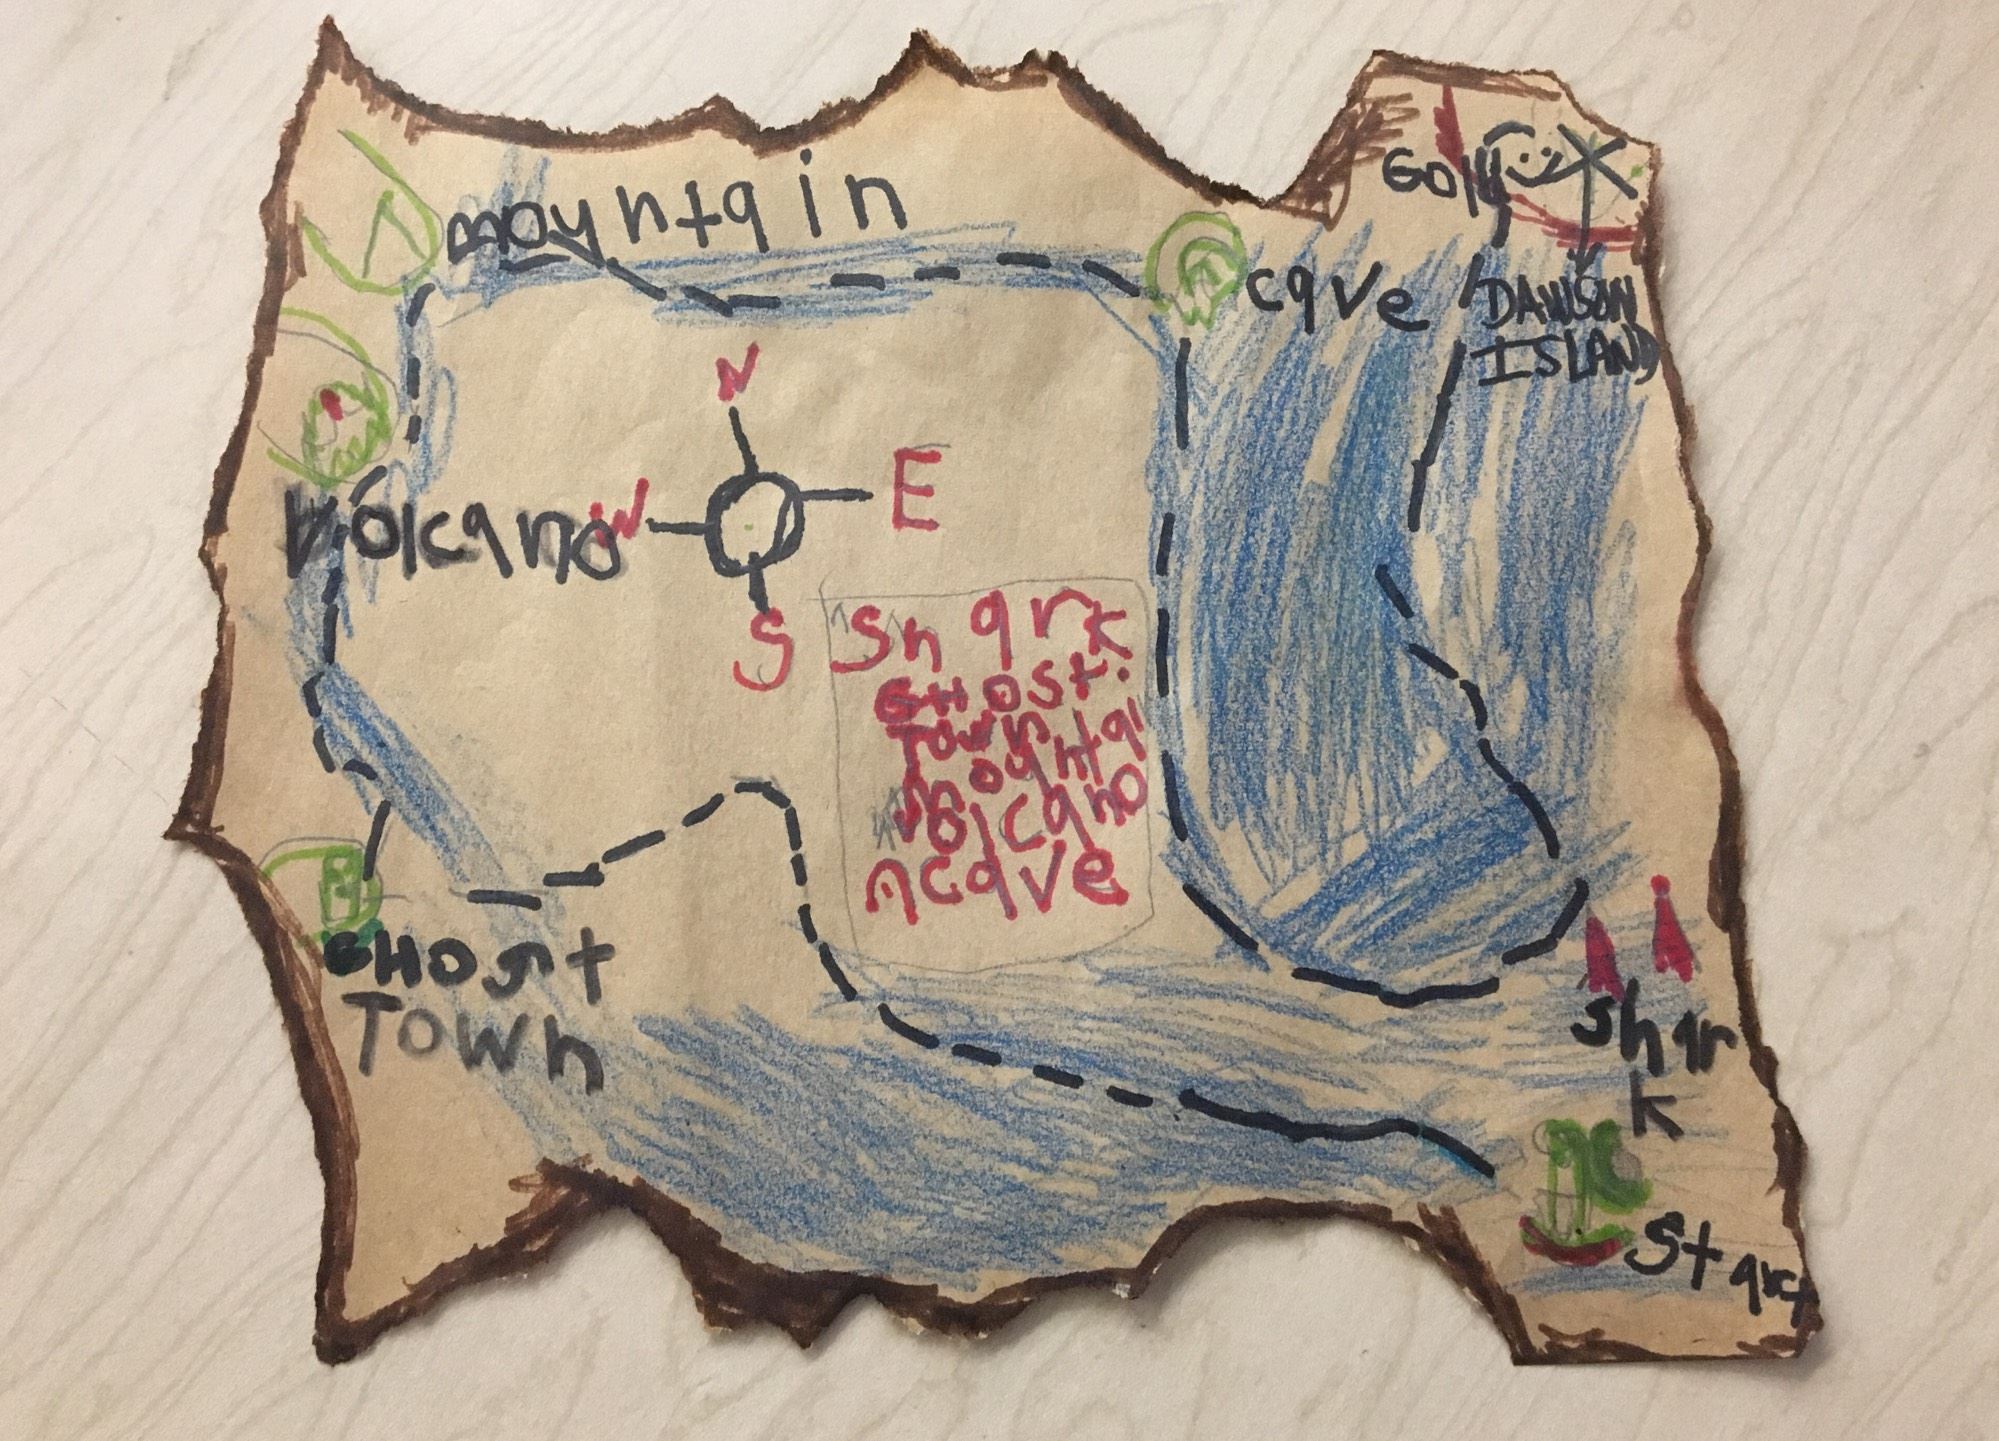 Gold
mountain
cave
DAWSON
ISLAND
N
Volcano
W
E
S
Shark
GHOST
TOWN
mountai
volcano
cave
GHOST
TOWN
shar
k
Start